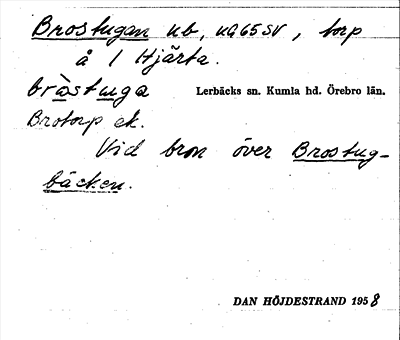 Brostugan nb, uq65SV, torp
å 1 Hjärta.
bròstuga Lerbäcks sn. Kumla hd. Örebro län.
Brotorp ek.
Vid bron över Brostug-
bäcken.
DAN HÖJDESTRAND 1958